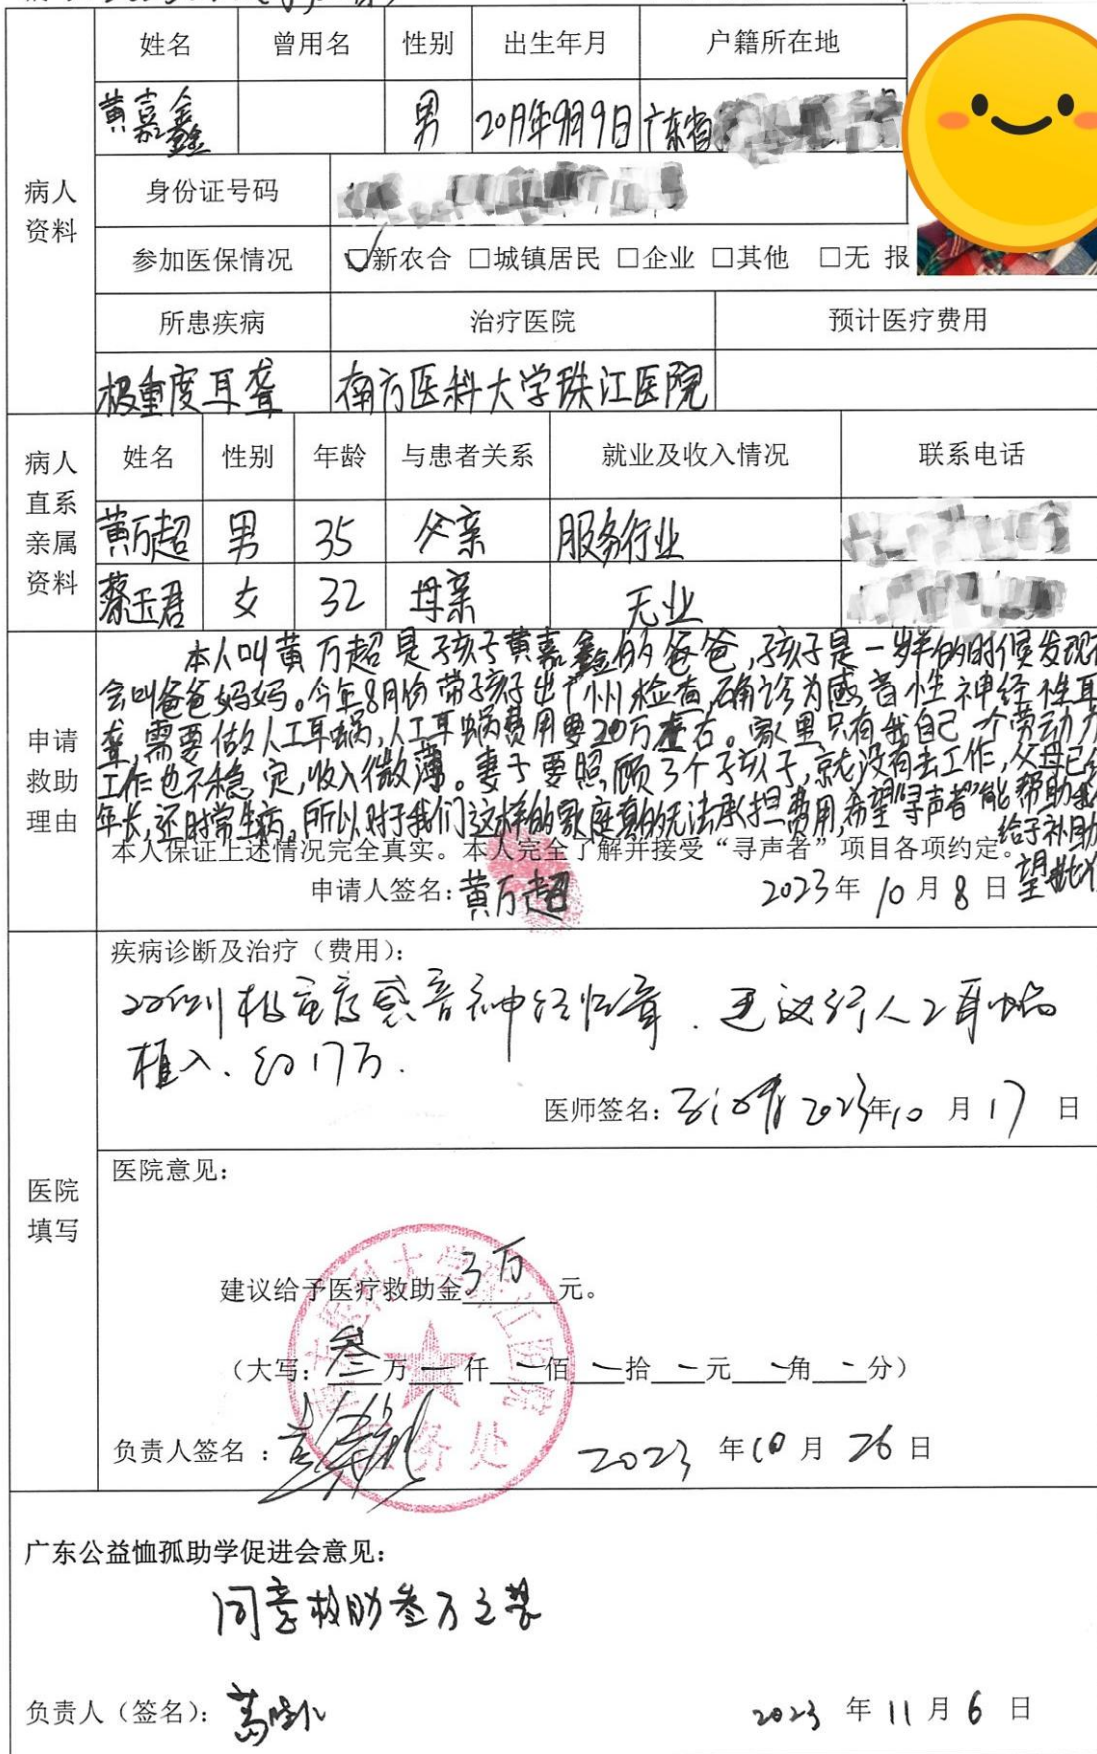 姓名 曾用名 性别 出生年月 户籍所在地
黄嘉鑫 男 9月9日 广东省
病人资料
身份证号码
参加医保情况 ☑新农合 □城镇居民 □企业 □其他 □无 报
所患疾病 治疗医院 预计医疗费用
极重度耳聋 南方医科大学珠江医院
病人直系亲属资料
姓名 性别 年龄 与患者关系 就业及收入情况 联系电话
黄万超 男 35 父亲 服务行业
蔡玉君 女 32 母亲 无业
申请救助理由
本人叫黄万超是孩子黄嘉鑫的爸爸,孩子是一岁半的时候发现不
会叫爸爸妈妈。今年8月份带孩子出广州检查,确诊为感音性神经性耳
聋,需要做人工耳蜗,人工耳蜗费用要20万左右。家里只有我自己一个劳动力
工作也不稳定,收入微薄。妻子要照顾3个孩子,就没有去工作,父母已经
年长,还时常生病。所以对于我们这样的家庭真的无法承担费用,希望“寻声者”能帮助我
给予补助
本人保证上述情况完全真实。本人完全了解并接受“寻声者”项目各项约定。
望批准
申请人签名:黄万超 2023年10月8日
医院填写
疾病诊断及治疗(费用):
双侧极重度感音神经性聋.建议行人工耳蜗
植入.约17万.
医师签名: 2023年10月17日
医院意见:
建议给予医疗救助金3万元。
(大写:叁万一仟一佰一拾一元一角一分)
南方医科大学珠江医院
医务处
负责人签名: 2023年10月26日
广东公益恤孤助学促进会意见:
同意救助叁万元整
负责人(签名): 2023年11月6日